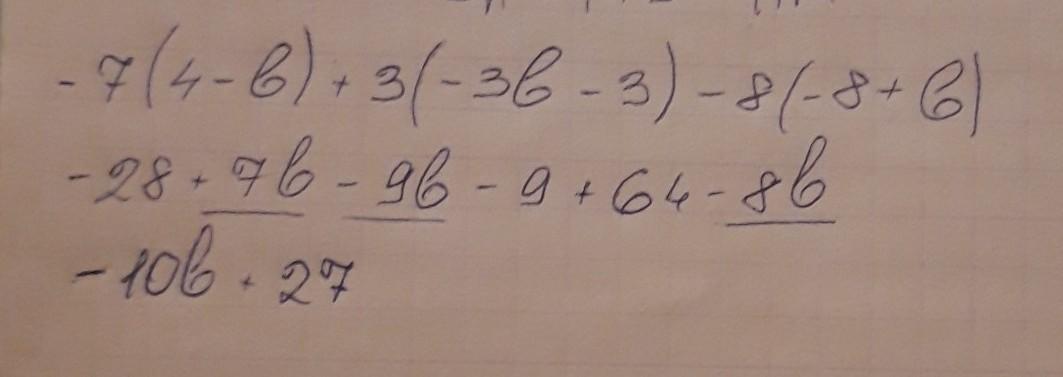 -7(4-b)+3(-3b-3)-8(-8+b)
-28+7b-9b-9+64-8b
-10b+27